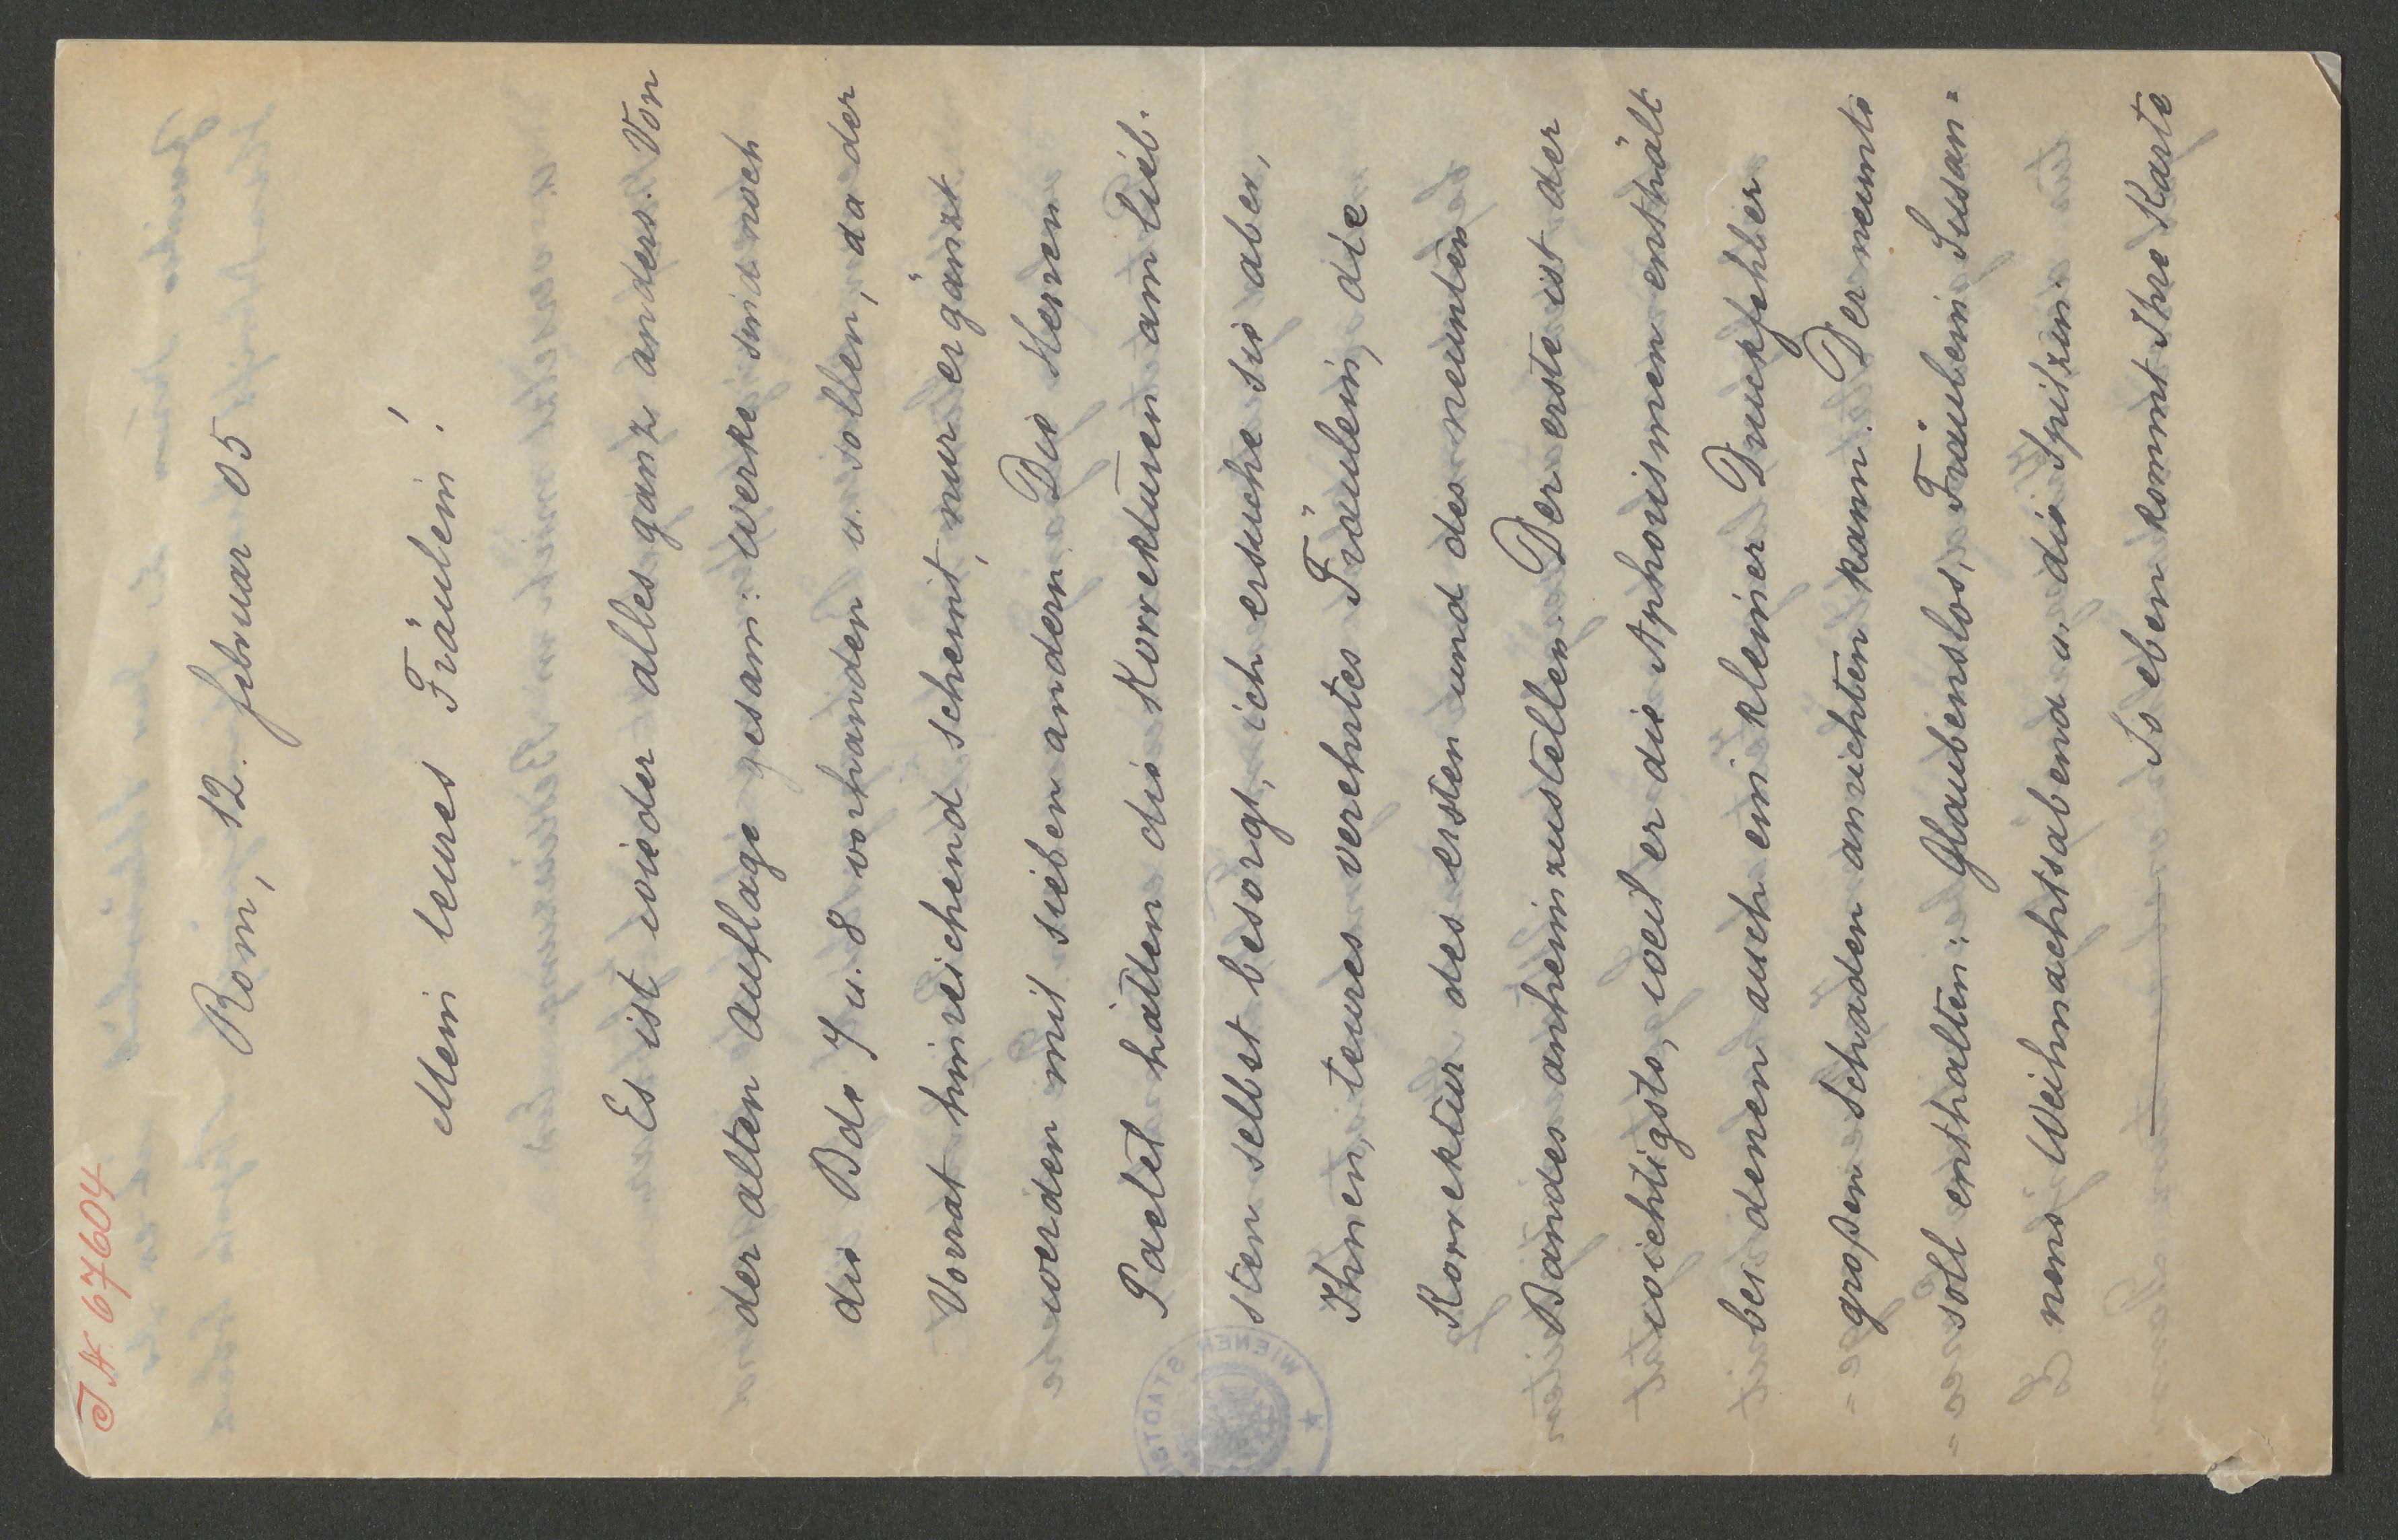 J. N. 67604
Rom, 12. Februar 05
Mein teures Fräulein!
Es ist wieder alles ganz anders. Von
der alten Auflage gesam: werke sind noch
die Bde 7 u. 8 vorhanden u. sollen, da der
Vorrat hinreichend scheint, nur ergänzt
werden mit sieben andern. Die Herren
Paetel hätten die Korrekturen am lieb-
sten selbst besorgt, ich ersuche sie aber,
Ihnen, teures verehrtes Fräulein, die
Korrektur des ersten und des neunten
Bandes anheimzustellen. Der erste ist der
wichtigste, weil er die Aphorismen enthält
bei denen auch ein kleiner Druckfehler
großen Schaden anrichten kann. Der neunte
soll enthalten: Glaubenslos, Fräulein Susan-
nens Weihnachtsabend u. die Spitzin.
So eben kommt Ihre Karte
WIENER STADT